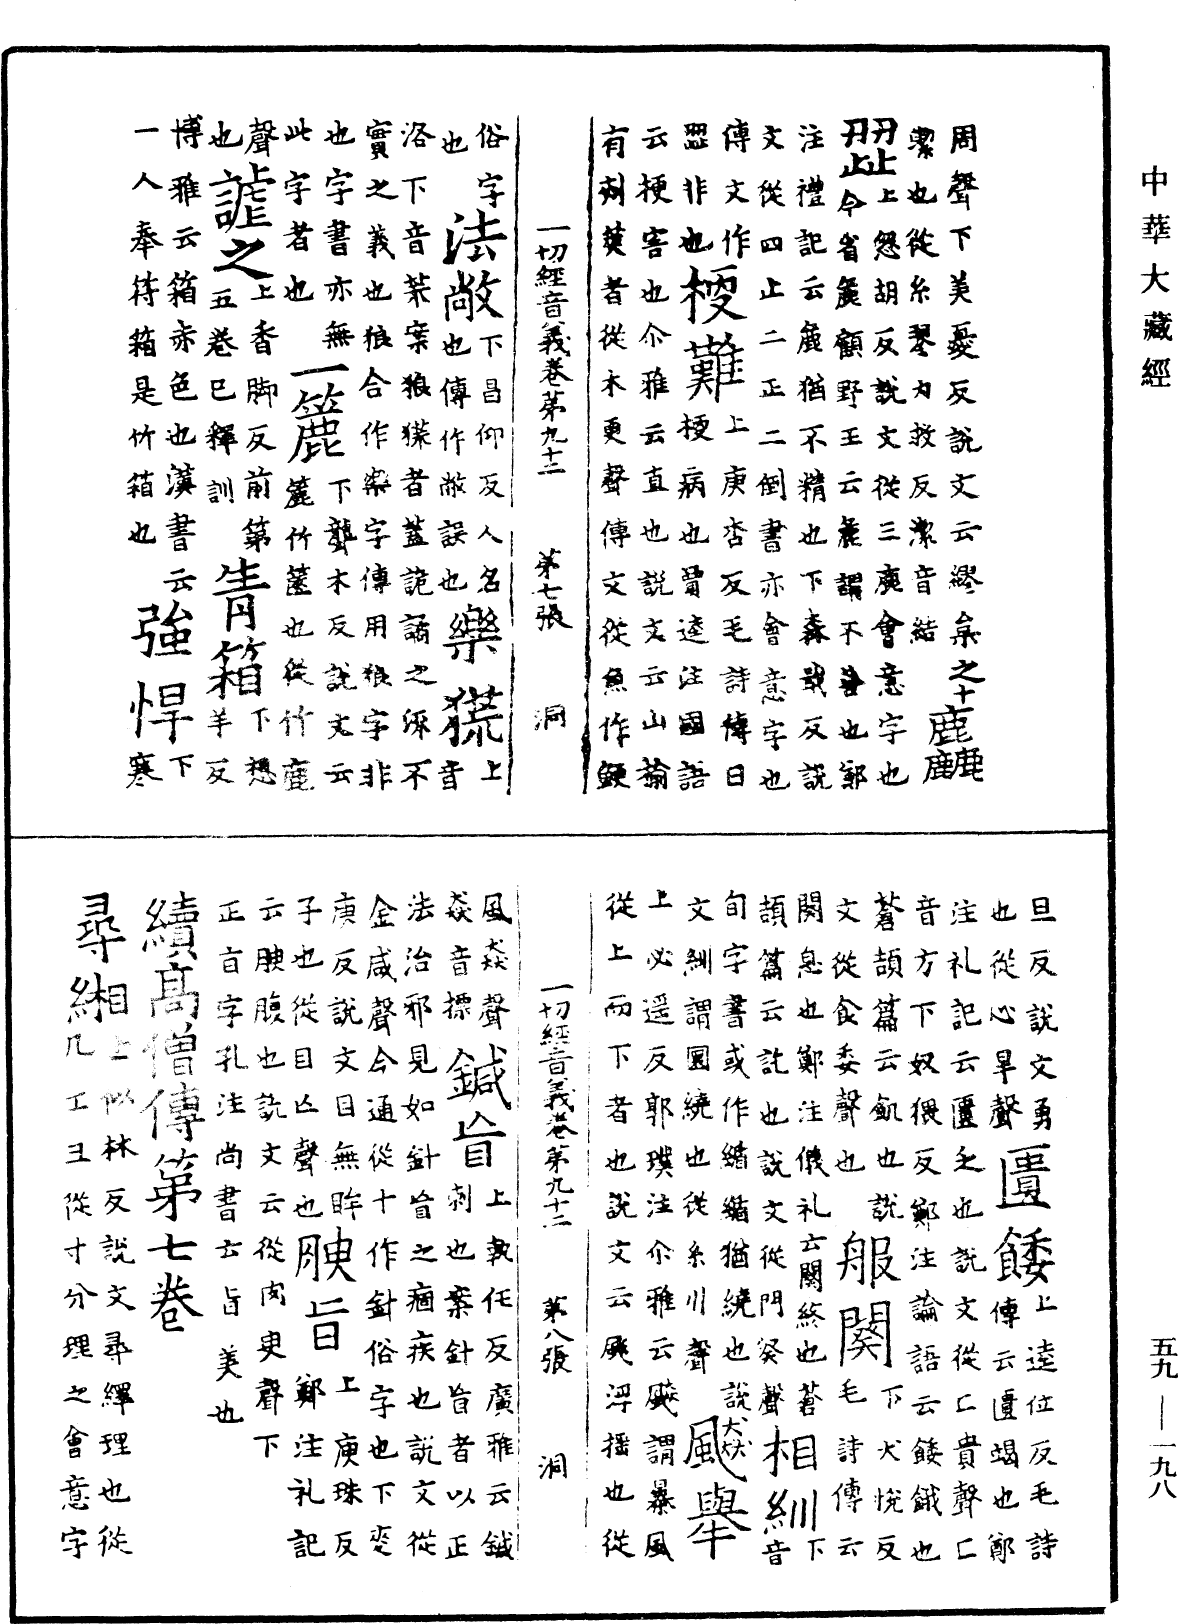 中華大藏經
周聲下美憂反説文云繆枲之十麤
絜也從糸翏力救反潔音結
上怱胡反説文從三鹿會意字也
今省麁顧野王云麁謂不善也鄭
注禮記云麁猶不精也下森戢反説
文從四止二正二倒書亦會意字也
傳文作梗難上庚杏反毛詩傳曰
澀非也梗病也賈逵注國語
云梗害也尒雅云直也説文云山榆
有刺莢者從木更聲傳文從魚作鯁
一切經音義卷第九十二 第七張 洞
俗字法敞下昌仰反人名樂獷上音
也也傳作敞誤也
洛下音案狼獷者蓋詭譎之深不
實之義也狼合作樂字傳用狼字非
也字書亦無一簏下聾木反説文云
此字者也簏竹篋也從竹鹿
聲謔之上香脚反前第青箱下想羊反
也五卷已釋訓
博雅云箱赤色也漢書云強悍下寒
一人奉符箱是竹箱也
旦反説文勇匱餧上逵位反毛詩
也從心旱聲傳云匱竭也鄭
注礼記云匱乏也説文從匚貴聲匚
音方下奴猥反鄭注論語云餧餓也
蒼頡篇云飢也説服闋下犬悅反
文從食委聲也毛詩傳云
闋息也鄭注儀礼云闋終也蒼相紃下音
頡篇云訖也説文從門癸聲
旬字書或作緧緧猶繞也説飆舉
文紃謂圓繞也從糸川聲
上必遥反郭璞注尒雅云飆謂暴風
從上而下者也説文云飆浮摇也從
一切經音義卷第九十二 第八張 洞
風猋聲鍼肓上執任反廣雅云鍼
猋音摽刺也案針肓者以正
法治邪見如針肓之痼疾也説文從
金咸聲今通從十作針俗字也下麥
庚反説文目無眸腴旨上庚珠反
子也從目亾聲也鄭注礼記
云腴腹也説文云從肉臾聲下
正旨字孔注尚書云旨美也
續高僧傳第七卷
尋緗上似林反説文尋繹理也從
几工彐從寸分理之會意字
五九—一九八